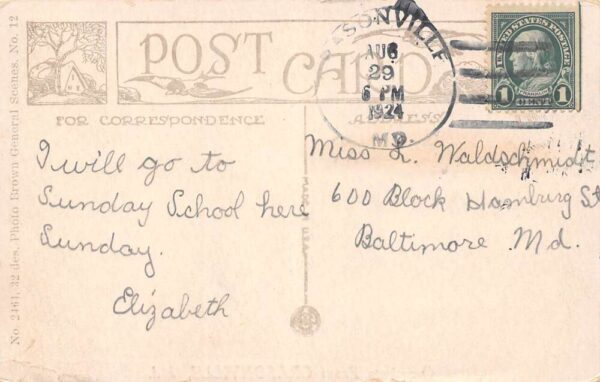 POST CARD
FOR CORRESPONDENCE
ADDRESS
No. 2461, 32 des. Photo Brown General Scenes. No. 12
MADE IN U.S.A.
AUG
29
6 PM
1924
MD.
UNITED STATES POSTAGE
FRANKLIN
1 CENT 1
I will go to
Sunday School here
Sunday.
Elizabeth
Miss L. Waldschmidt
600 Block Hamburg St
Baltimore Md.